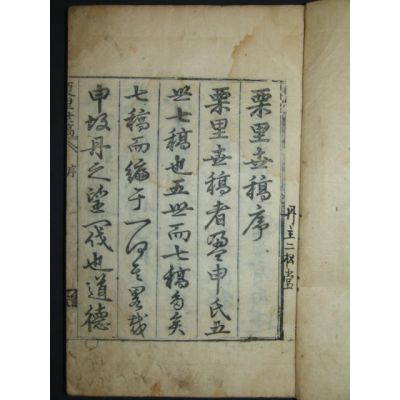 丹丘二松堂
栗里世稿序
栗里世稿者申氏五
世七稿也五世而七稿多矣
七稿而編于一何其畧哉
申故丹之望一代也道德
栗里世稿 序